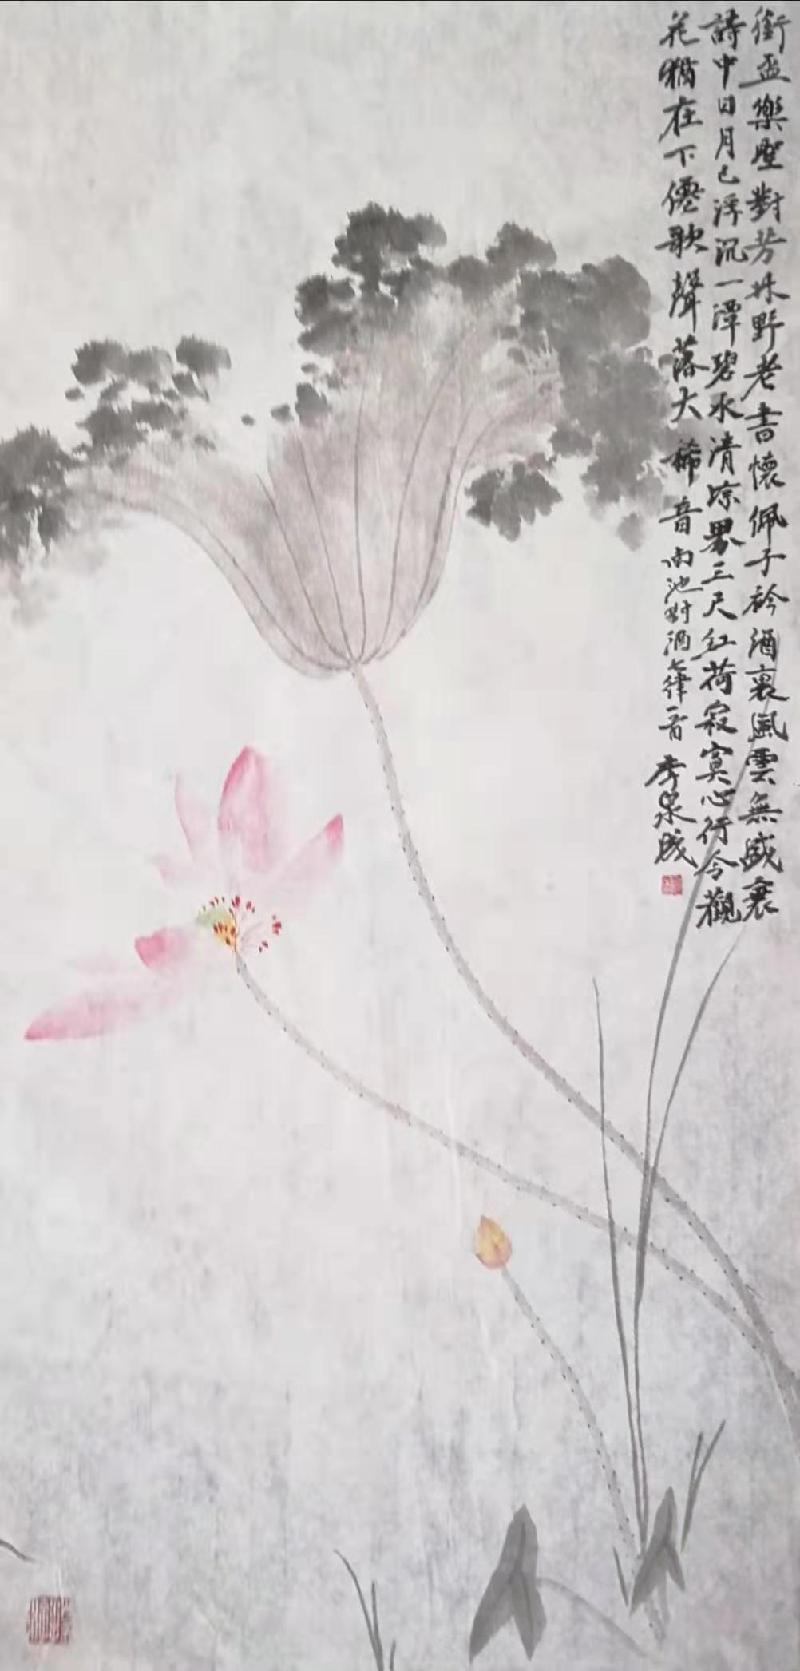 銜盃樂聖對芳林野老書懷佩子衿酒裏風雲無盛衰
詩中日月已浮沉一潭碧水清涼界三尺紅荷寂寞心行令觀
花猶在下僊歌聲落大稀音南池對酒七律一首李泉成